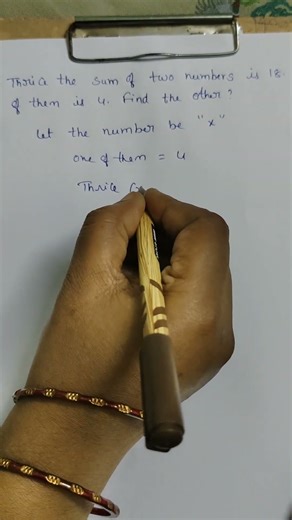 Thrice the sum of two numbers is 18.
of them is 4. Find the other?
Let the number be "x"
one of them = 4
Thrice (